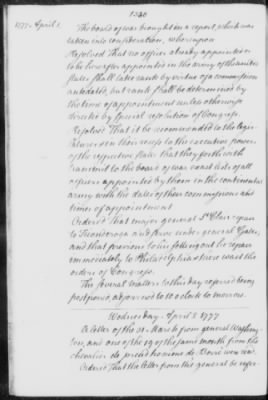 1340
1777. April 1.
The board of war brought in a report, which was
taken into consideration, whereupon
Resolved That no officer already appointed or
to be hereafter appointed in the army of the united
states shall take rank by virtue of a commission
antedated, but rank shall be determined by
the time of appointment unless otherwise
directed by special resolution of Congress.
Resolved That it be recommended to the legis-
latures or in their recess to the executive powers
of the respective states that they forthwith
transmit to the board of war exact lists of all
officers appointed by them in the continental
army with the dates of their commissions and
times of appointment
Ordered That major general St Clair repair
to Ticonderoga and serve under general Gates,
and that previous to his setting out he repair
immediately to Philadelphia there wait the
orders of Congress.
The several matters to this day referred being
postponed, adjourned to 10 o clock to morrow.
Wednesday. April 2 1777
A letter of the 31 March from general Washing-
ton, and one of the 19 of the same month from the
chevalier de were read.
Ordered That the letter from the general be refer-